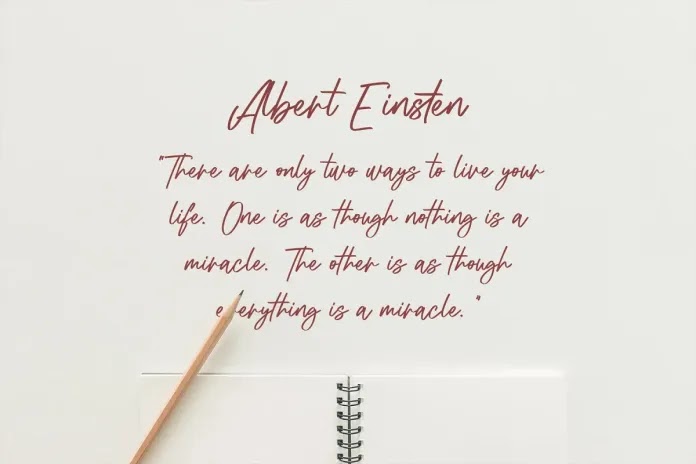 Albert Einsten
"There are only two ways to live your
life. One is as though nothing is a
miracle. The other is as though
everything is a miracle. "